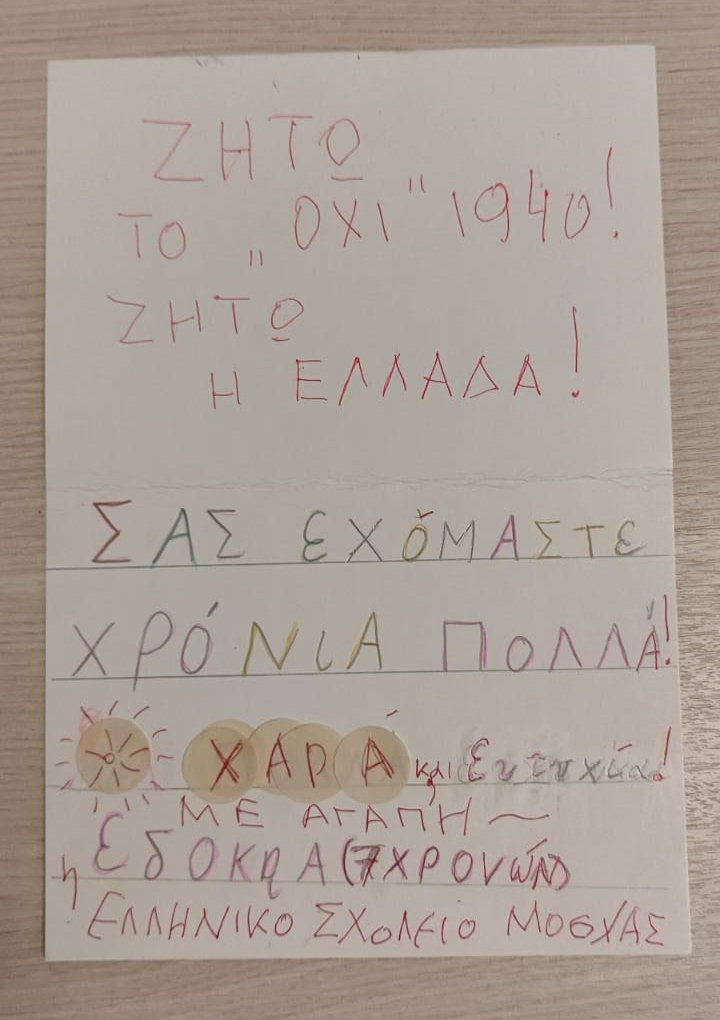 ΖΗΤΩ
ΤΟ „ΟΧΙ" 1940!
ΖΗΤΩ
Η ΕΛΛΑΔΑ!
ΣΑΣ ΕΧΌΜΑΣΤΕ
ΧΡΌΝΙΑ ΠΟΛΛΆ!
ΧΑΡΆ και Ευτυχία!
ΜΕ ΑΓΑΠΗ ~
(7 ΧΡΟΝΏΝ)
ΕΛΛΗΝΙΚΟ ΣΧΟΛΕΙΟ ΜΟΣΧΑΣ